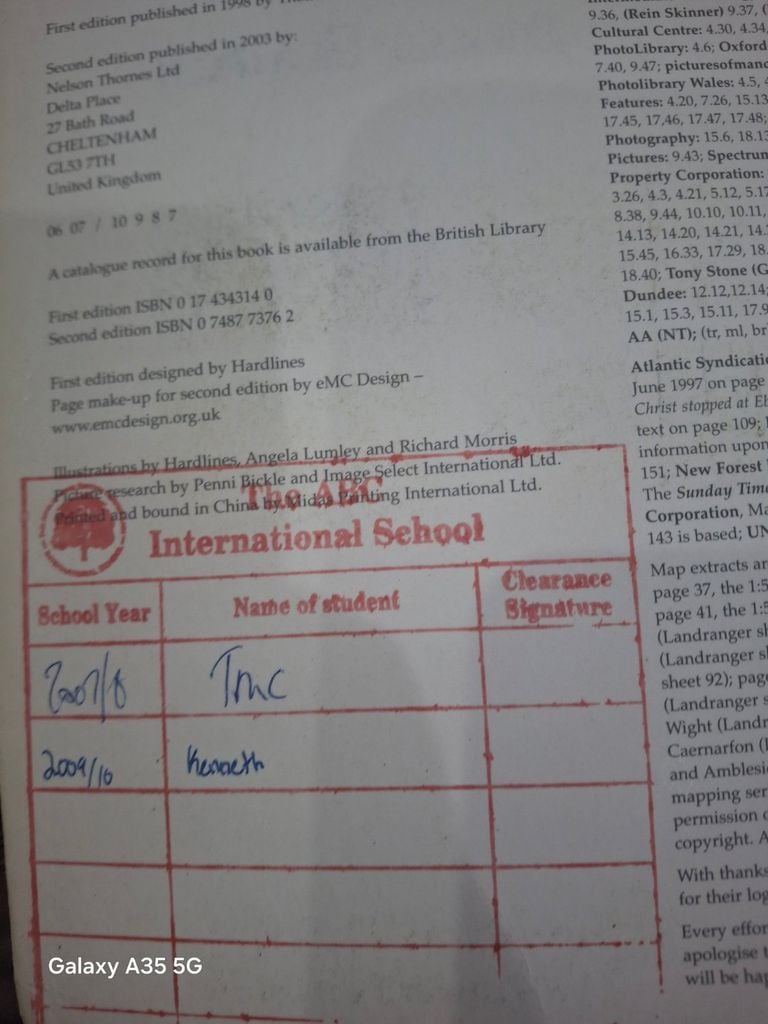 First edition published in 1998 by
Second edition published in 2003 by:
Nelson Thornes Ltd
Delta Place
27 Bath Road
CHELTENHAM
GL53 7TH
United Kingdom
06 07 / 10 9 8 7
A catalogue record for this book is available from the British Library
First edition ISBN 0 17 434314 0
Second edition ISBN 0 7487 7376 2
First edition designed by Hardlines
Page make-up for second edition by eMC Design –
www.emcdesign.org.uk
Illustrations by Hardlines, Angela Lumley and Richard Morris
Picture research by Penni Bickle and Image Select International Ltd.
Printed and bound in China by Midas Printing International Ltd.
The ABC
International School
School Year Name of student Clearance Signature
2007/8 TMC
2009/10 Kenneth
9.36, (Rein Skinner) 9.37, (
Cultural Centre: 4.30, 4.34,
PhotoLibrary: 4.6; Oxford
7.40, 9.47; picturesofmanc
Photolibrary Wales: 4.5, 4
Features: 4.20, 7.26, 15.13
17.45, 17,46, 17.47, 17.48;
Photography: 15.6, 18.13
Pictures: 9.43; Spectrum
Property Corporation:
3.26, 4.3, 4.21, 5.12, 5.17
8.38, 9.44, 10.10, 10.11,
14.13, 14.20, 14.21, 14.
15.45, 16.33, 17.29, 18.
18.40; Tony Stone (G
Dundee: 12.12,12.14;
15.1, 15.3, 15.11, 17.9
AA (NT); (tr, ml, br
Atlantic Syndicati
June 1997 on page
Christ stopped at Eb
text on page 109;
information upon
151; New Forest
The Sunday Time
Corporation, Ma
143 is based; UN
Map extracts ar
page 37, the 1:5
page 41, the 1:5
(Landranger sh
(Landranger sh
sheet 92); page
(Landranger s
Wight (Landr
Caernarfon (
and Amblesi
mapping ser
permission o
copyright. A
With thanks
for their log
Every effor
apologise t
will be hap
Galaxy A35 5G